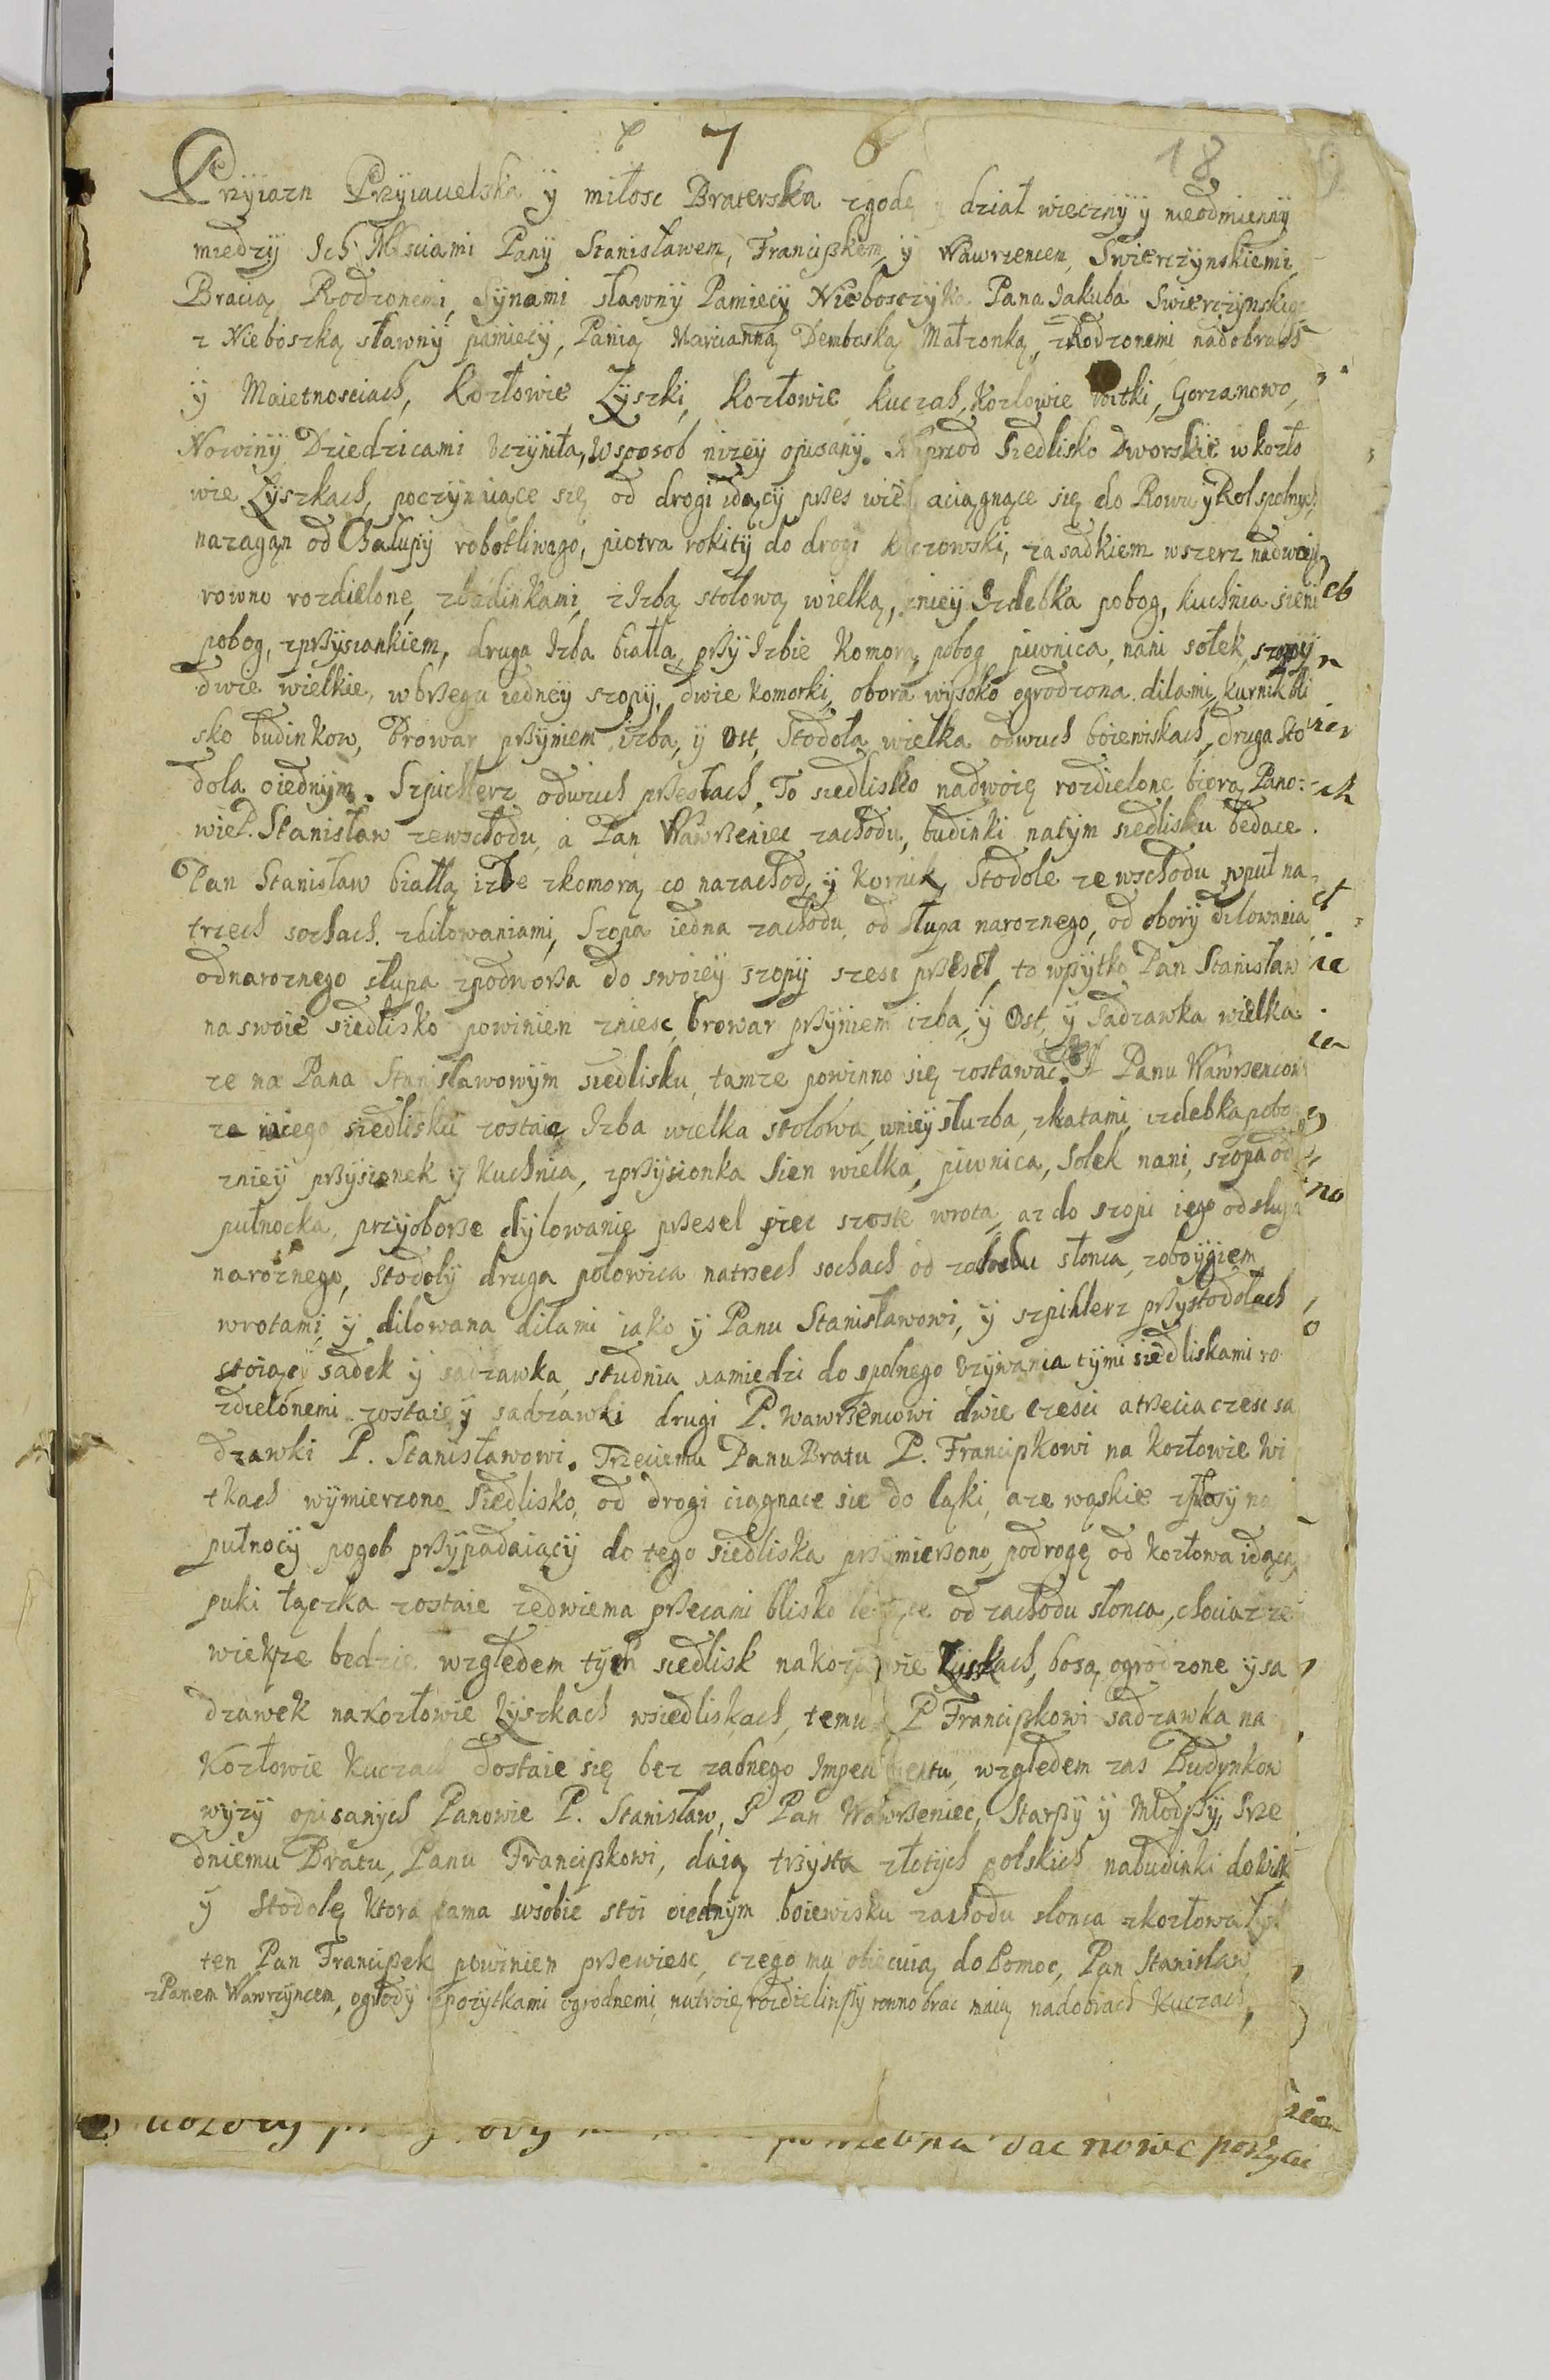 7 6
18 9
Przyiazn Przyiacielska ÿ miłosc Braterska zgodę y dział wiecznÿ ÿ nieodmiennÿ
miedzÿ Ich Mściami Panÿ Stanisławem, Franciszkiem, ÿ Wawrzencem, Swierczÿnskiemi
Bracią Rodzonemi, Sÿnami sławnÿ Pamiecÿ Nieboszczÿka Pana Jakuba Swierczÿnskiego
z Nieboszką sławnÿ pamiecÿ, Panią Mariianną Dembską Matzonką, zRodzonemi nadobrach
ÿ Maietnosciach, Kozłowie Zÿszki, Kozłowie Kuczach, Kozłowie Witki, Gorzanowo,
Nowinÿ Dziedzicami Vczÿniła, Wsposob nizeÿ opisanÿ. Naprzod Siedlisko Dworskie w Kozło
wie Zÿszkach, poczÿnaiące się od drogi idącÿ przes wieś aciągnące się do Rowu ÿ Rol spolnÿch
nazagąn od Chałupÿ robotliwego, piotra rokitÿ do drogi kuczowski, zasadkiem wszerz nadwoię
rowno rozdielone, zbudinkami, z Izbą stołową wielką, zniey Izdebka pobog, kuchnia sieni
pobog, zprzysiankiem, druga Izba biatła, przÿ Izbie Komora, pobog piwnica, nani sołek, szopÿ
dwie wielkie, wbrzegu iedneÿ szopÿ, dwie komorki, obora wÿsoko ogrodzona dilami, kurnik bli
sko budinkow, Browar przÿniem izba, ÿ Ost, Stodoła wielka odwuch boiewiskach, druga Sto
doła oiednÿm. Szpichlerz odwuch przesłach. To siedlisko nadwoię rozdielone biorą Pano=
wie P. Stanisław zewschodu, a Pan Wawrzeniec zachodu, budinki natÿm siedlisku bedace.
Pan Stanisław biatłą izbe zkomorą co nazachod, ÿ Kurnik, Stodole zewschodu wpuł na
trzech sochach zdilowaniami, Szopa iedna zachodu, od słupa naroznego, od oborÿ dilownia
odnaroznego słupa zpodworza do swoieÿ szopÿ szesc przeseł, to wszÿtko Pan Stanisław
na swoie siedlisko powinien zniesc, browar przÿniem izba, ÿ Ost, ÿ Sadzawka wielka
ze na Pana Stanisławowÿm siedlisku, tamze powinno się zostawac. A Panu Wawrzencow
ze niego siedlisku zostaie Izba wielka stołowa, wniey słuzba, zkatami, izdebka pobo
zniey przÿsienek ÿ kuchnia, zprzÿsionka Sien wielka, piwnica, Sołek nani, szopa od
pułnocka, przÿoborze dÿlowanie przeseł piec szoste wrota, az do szopi iego od słupa
naroznego, Stodołÿ druga połowica natrzech sochach od zachodu słonca, zoboÿgiem
wrotami, ÿ dilowana dilami iako ÿ Panu Stanisławowi, ÿ szpihlerz przÿstodołach
stoiącÿ sadek ÿ sadzawka, studnia namiedzi do spolnego vzÿwania tÿmi siedliskami ro
zdielonemi zostaie ÿ sadzawki drugi P. Wawrzencowi dwie czesci atrzecia czesc sa
dzawki P. Stanisławowi. Trzeciemu Panu Bratu P. Franciszkowi na Kozłowie Wi
tkach wÿmierzono Siedlisko, od drogi ciągnace sie do łąki, aze wąskie zposÿ na
pułnocÿ pogob przÿpadaiącÿ do tego siedliska przÿmierzono, podrogę od Kozłowa idącą
puki łączka zostaie zedwiema przecami blisko lezące od zachodu słonca, chociazze
wieksze bedzie wzgłedem tÿch siedlisk na Kozłowie Zÿszkach, bosą ogrodzone ÿ sa
dzawek na Kozłowie Zÿszkach wsiedliskach, temu P Franciszkowi sadzawka na
Kozłowie Kuczach dostaie się bez zadnego Impedimentu, wzgłedem zas Budÿnkow
wÿzÿ opisanÿch Panowie P. Stanisław, ÿ Pan Wawrzeniec, Starszÿ ÿ Młodszÿ, Srze
dniemu Bratu, Panu Franciszkowi, daią trzÿsta złotÿch polskich nabudinki do Witk
ÿ Stodołę ktora sama wsobie stoi oiednÿm boiewisku zachodu słonca zkozłowa Zÿsz
ten Pan Franciszek powinien przewiesc, czego mu obiecuią do Pomoc, Pan Stanisław
zPanem Wawrzÿncem, ogrodÿ zpozÿtkami ogrodnemi, natroię rozdielinszÿ rowno brac maią nadobrach Kuczach,
potrzebna dac nowe poszycie